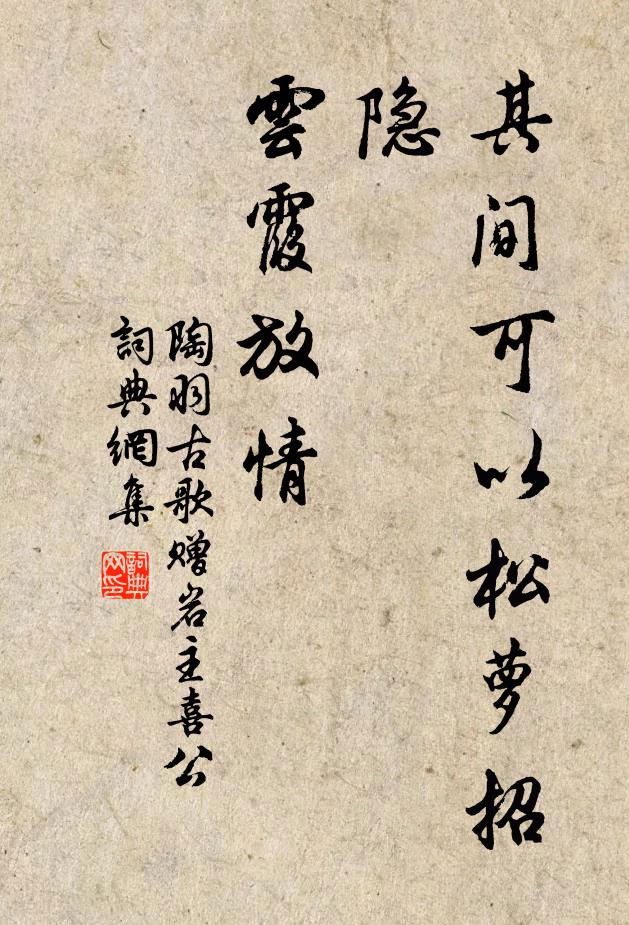 其间可以松萝招
隐
雲霞放情
陶羽古歌赠岩主喜公
詞典網集
詞典网印